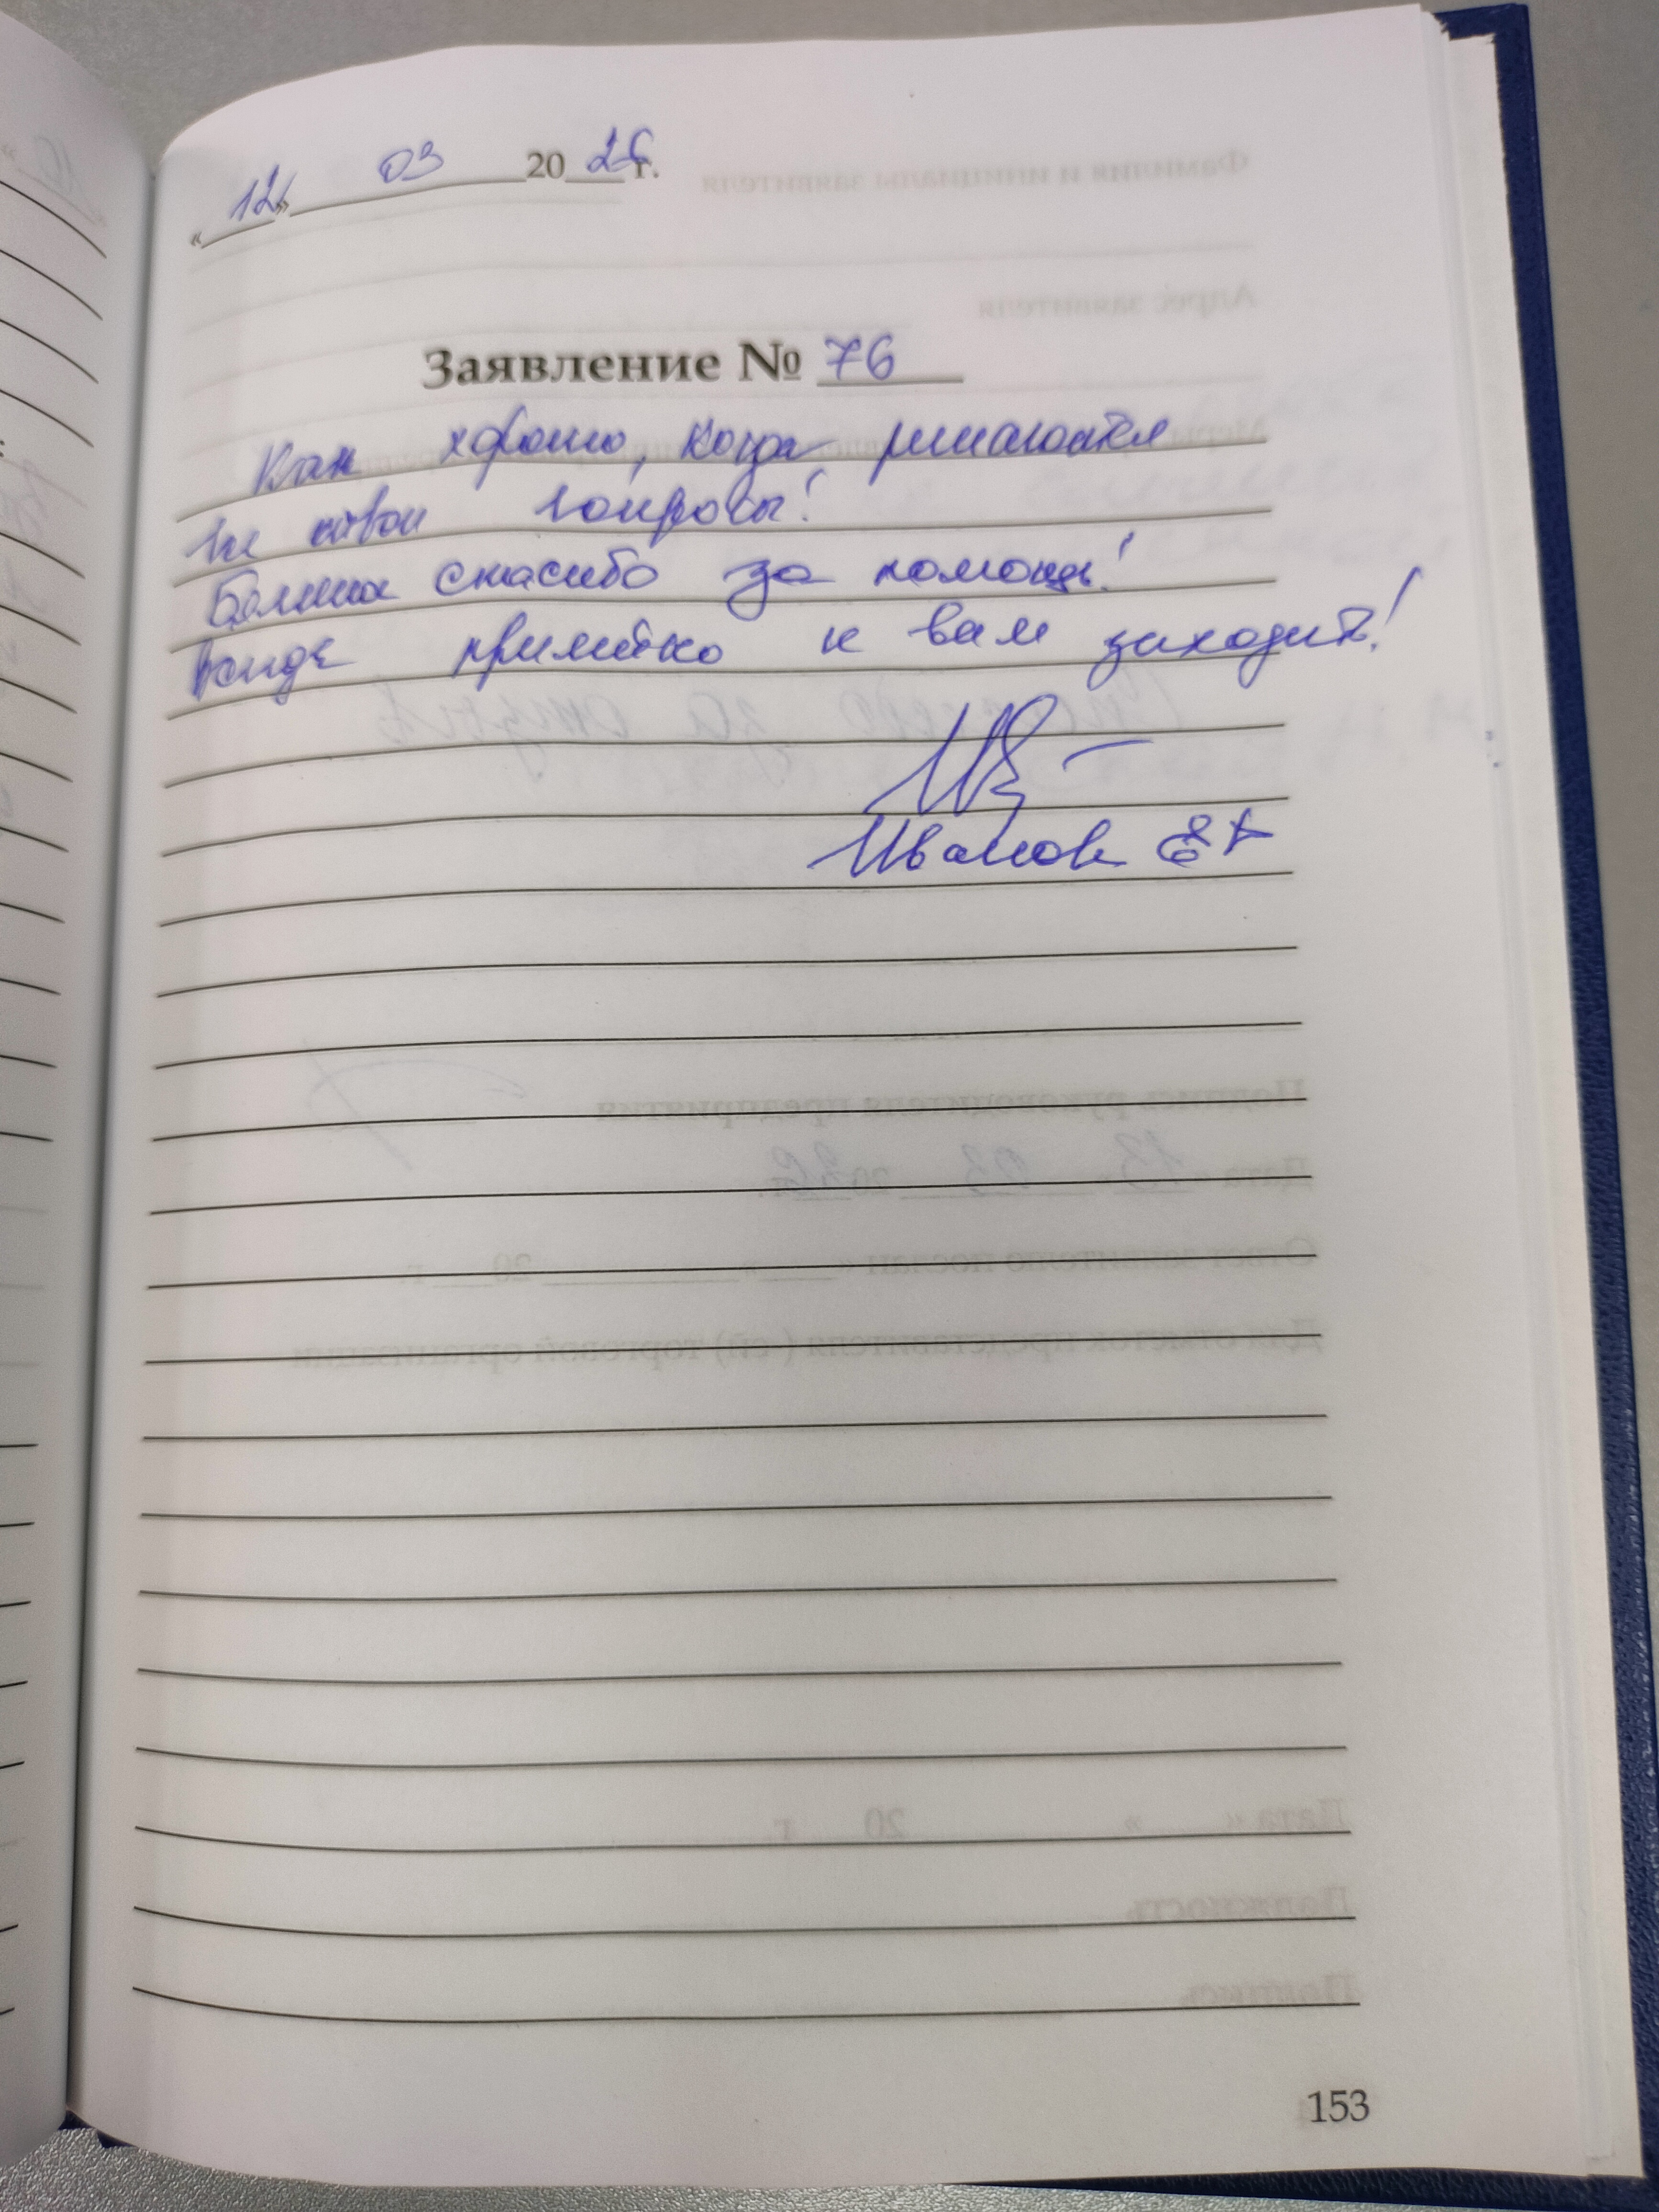 «12» 03 2026 г.
Заявление № 76
Как хорошо, когда решаются
все свои вопросы!
Большое спасибо за помощь!
приятно к вам заходить!
Иванов
153